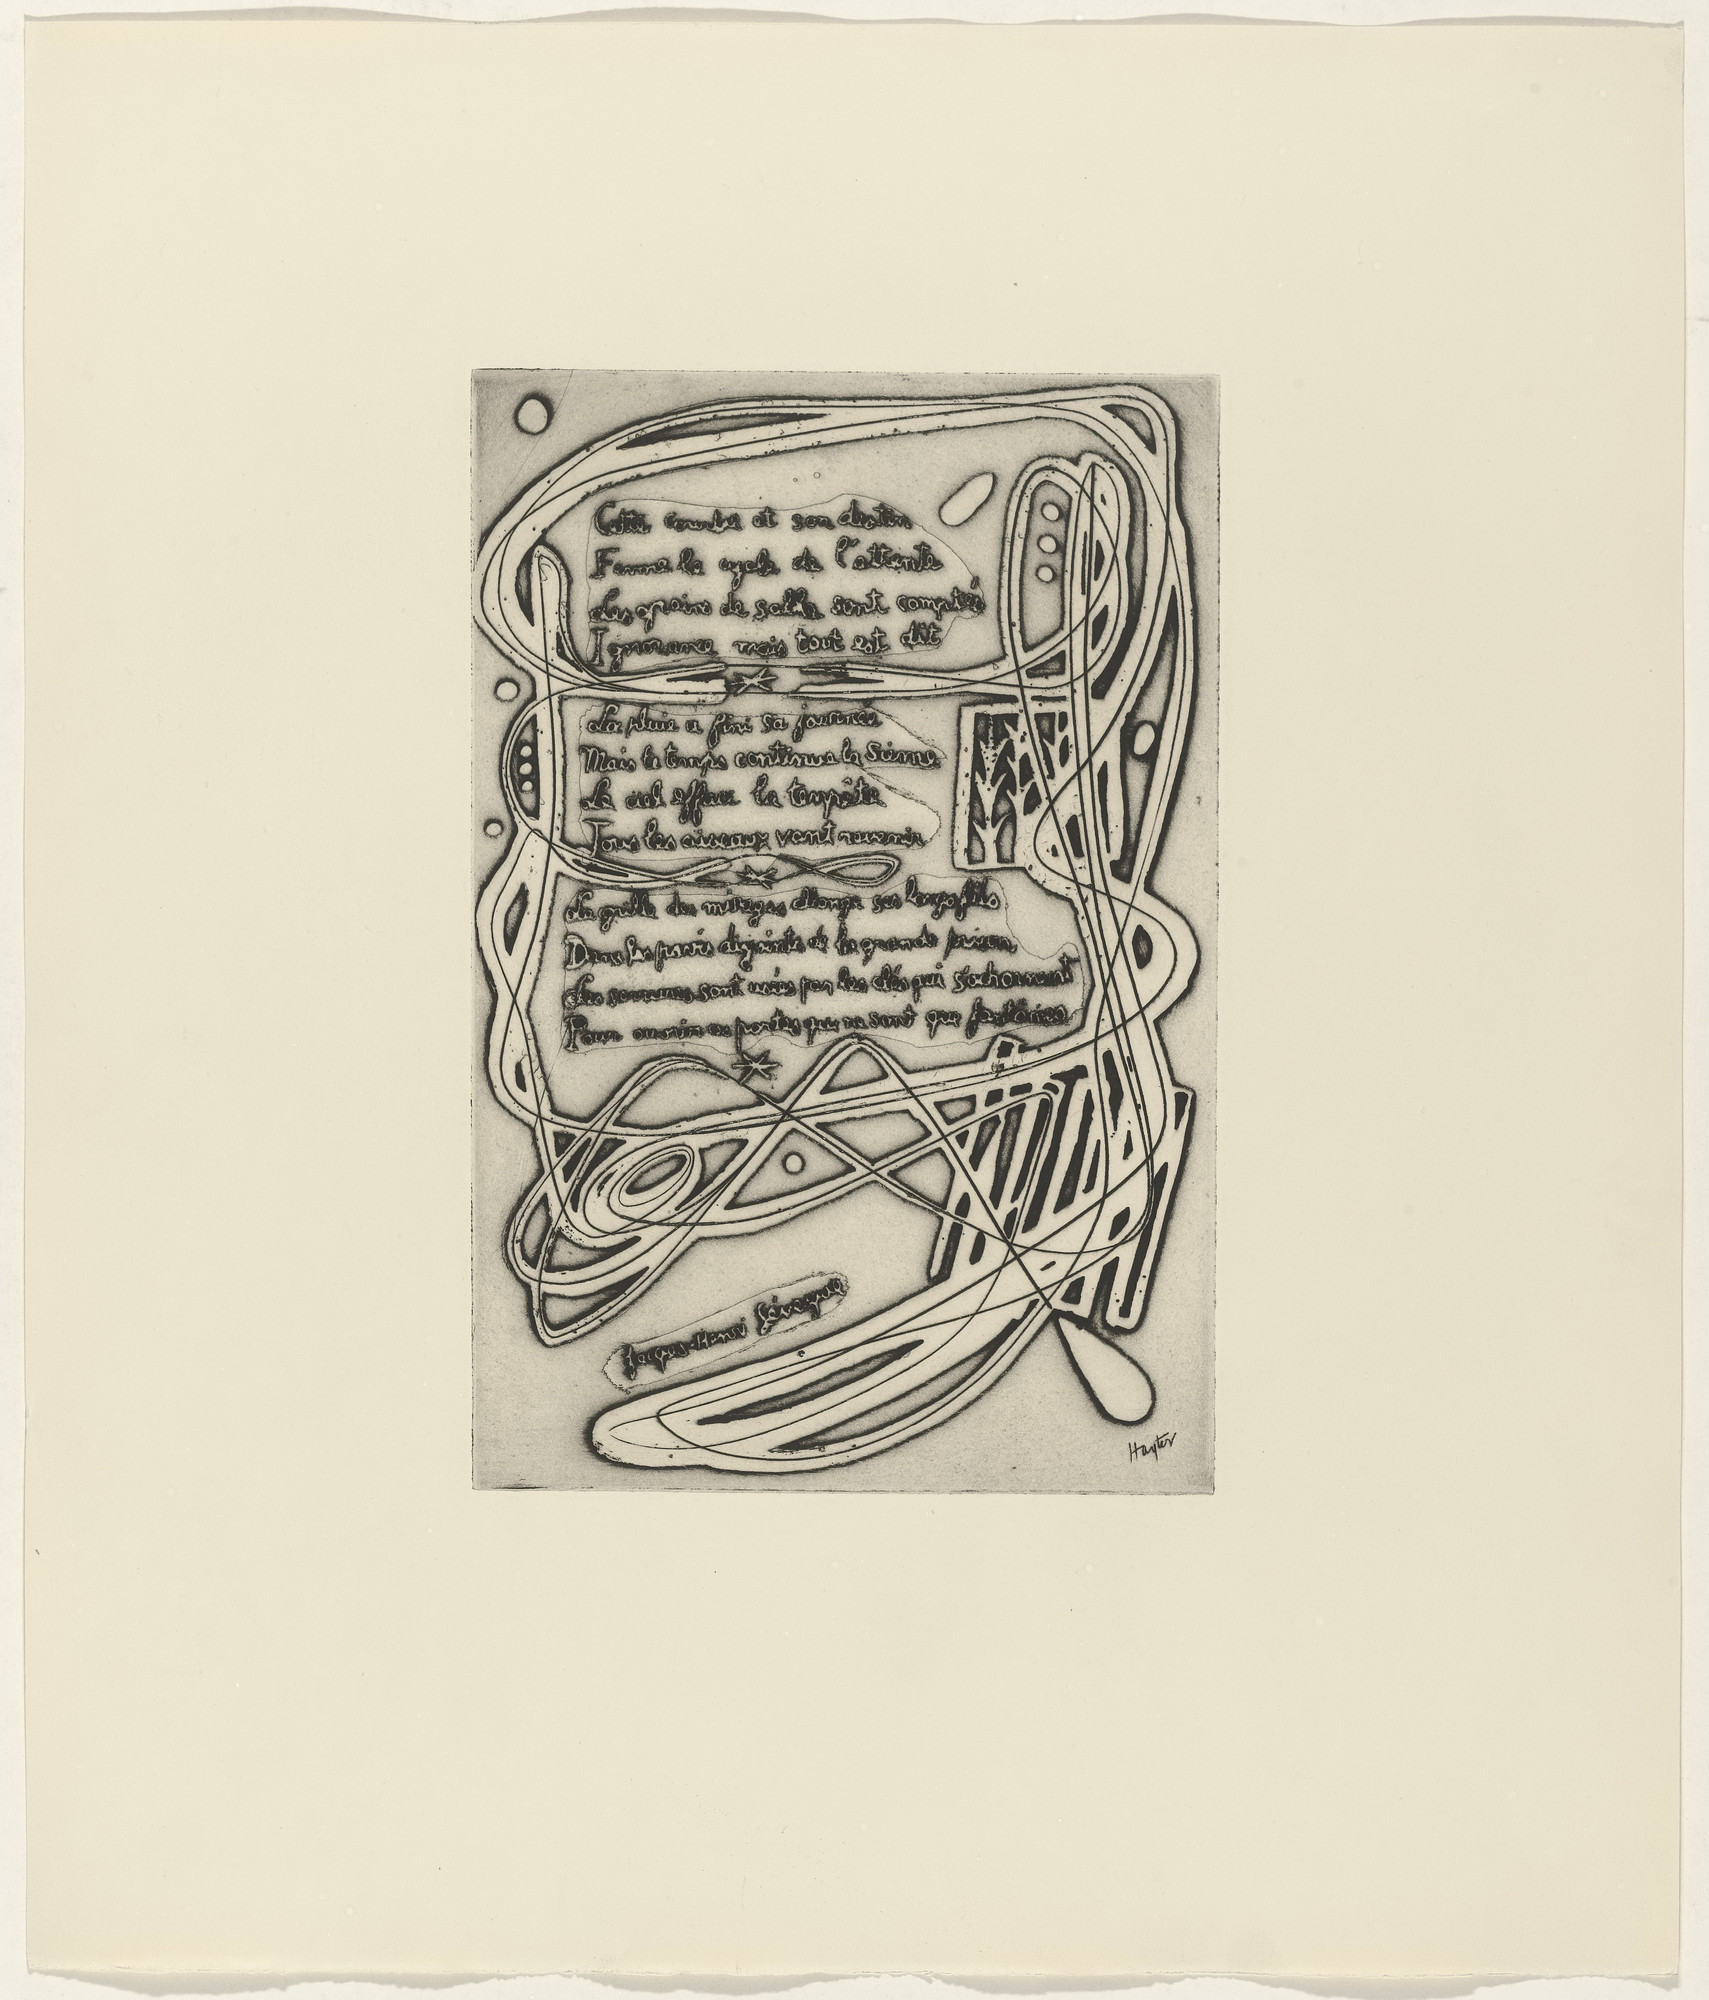 Cette courbe et son destin
Ferme le cycle de l'attente
Les grains de sable sont comptés
Ignorance mais tout est dit
La pluie a fini sa journée
Mais le temps continue la sienne
Le ciel efface la tempête
Tous les oiseaux vont revenir
La grille des mirages allonge ses longs fils
Dans les parois de la grande prison,
Les serrures sont usées par les clés qui s'acharnent
Pour ouvrir ces portes qui ne sont que
Jacques-Henri Lévesque
Hayter